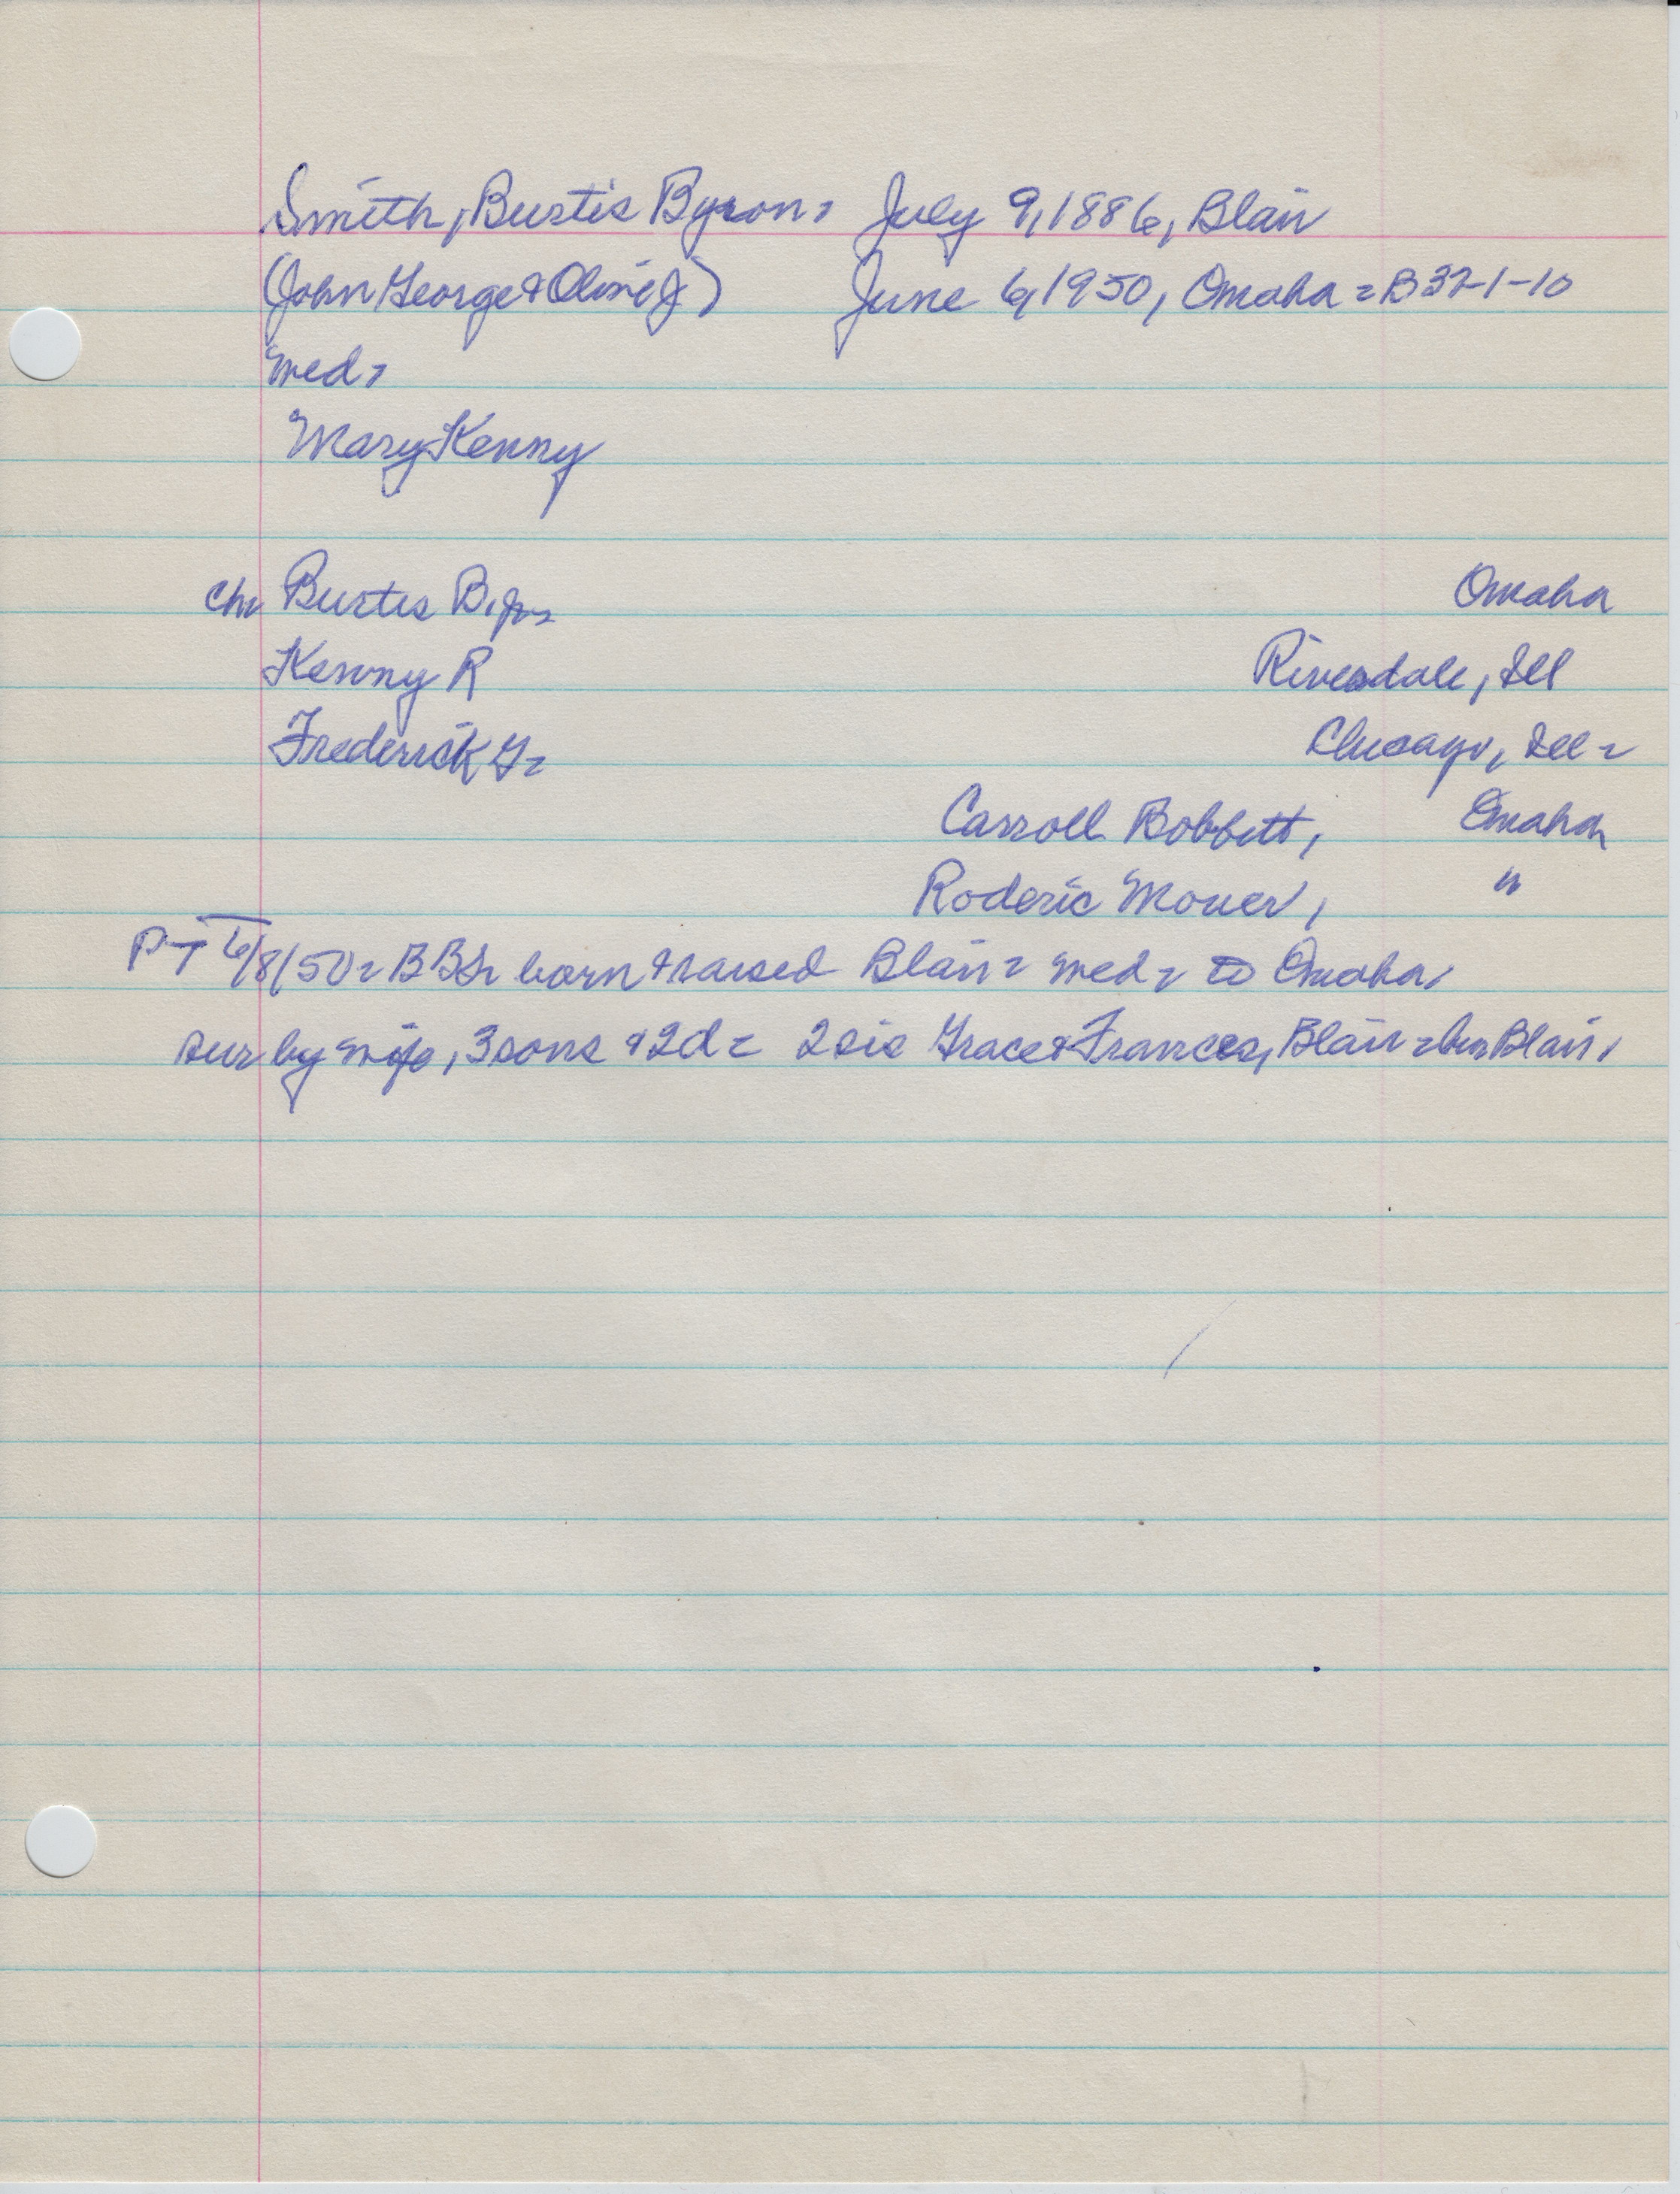 Smith, Burtis Byron, July 9, 1886, Blair
(John George & Olive J) June 6, 1950, Omaha = B 37-1-10
med,
Mary Kenny
ch, Burtis B, jr, Omaha
Kenny R Riverdale, Ill
Frederick G, Chicago, Ill -
Carroll Bobbett, Omaha
Roderic Mower, "
P-T 6/8/50 - BBS born & raised Blair - med - to Omaha,
sur by wife, 3 sons & 2 d - 2 sis Grace & Frances, Blair - bur Blair,